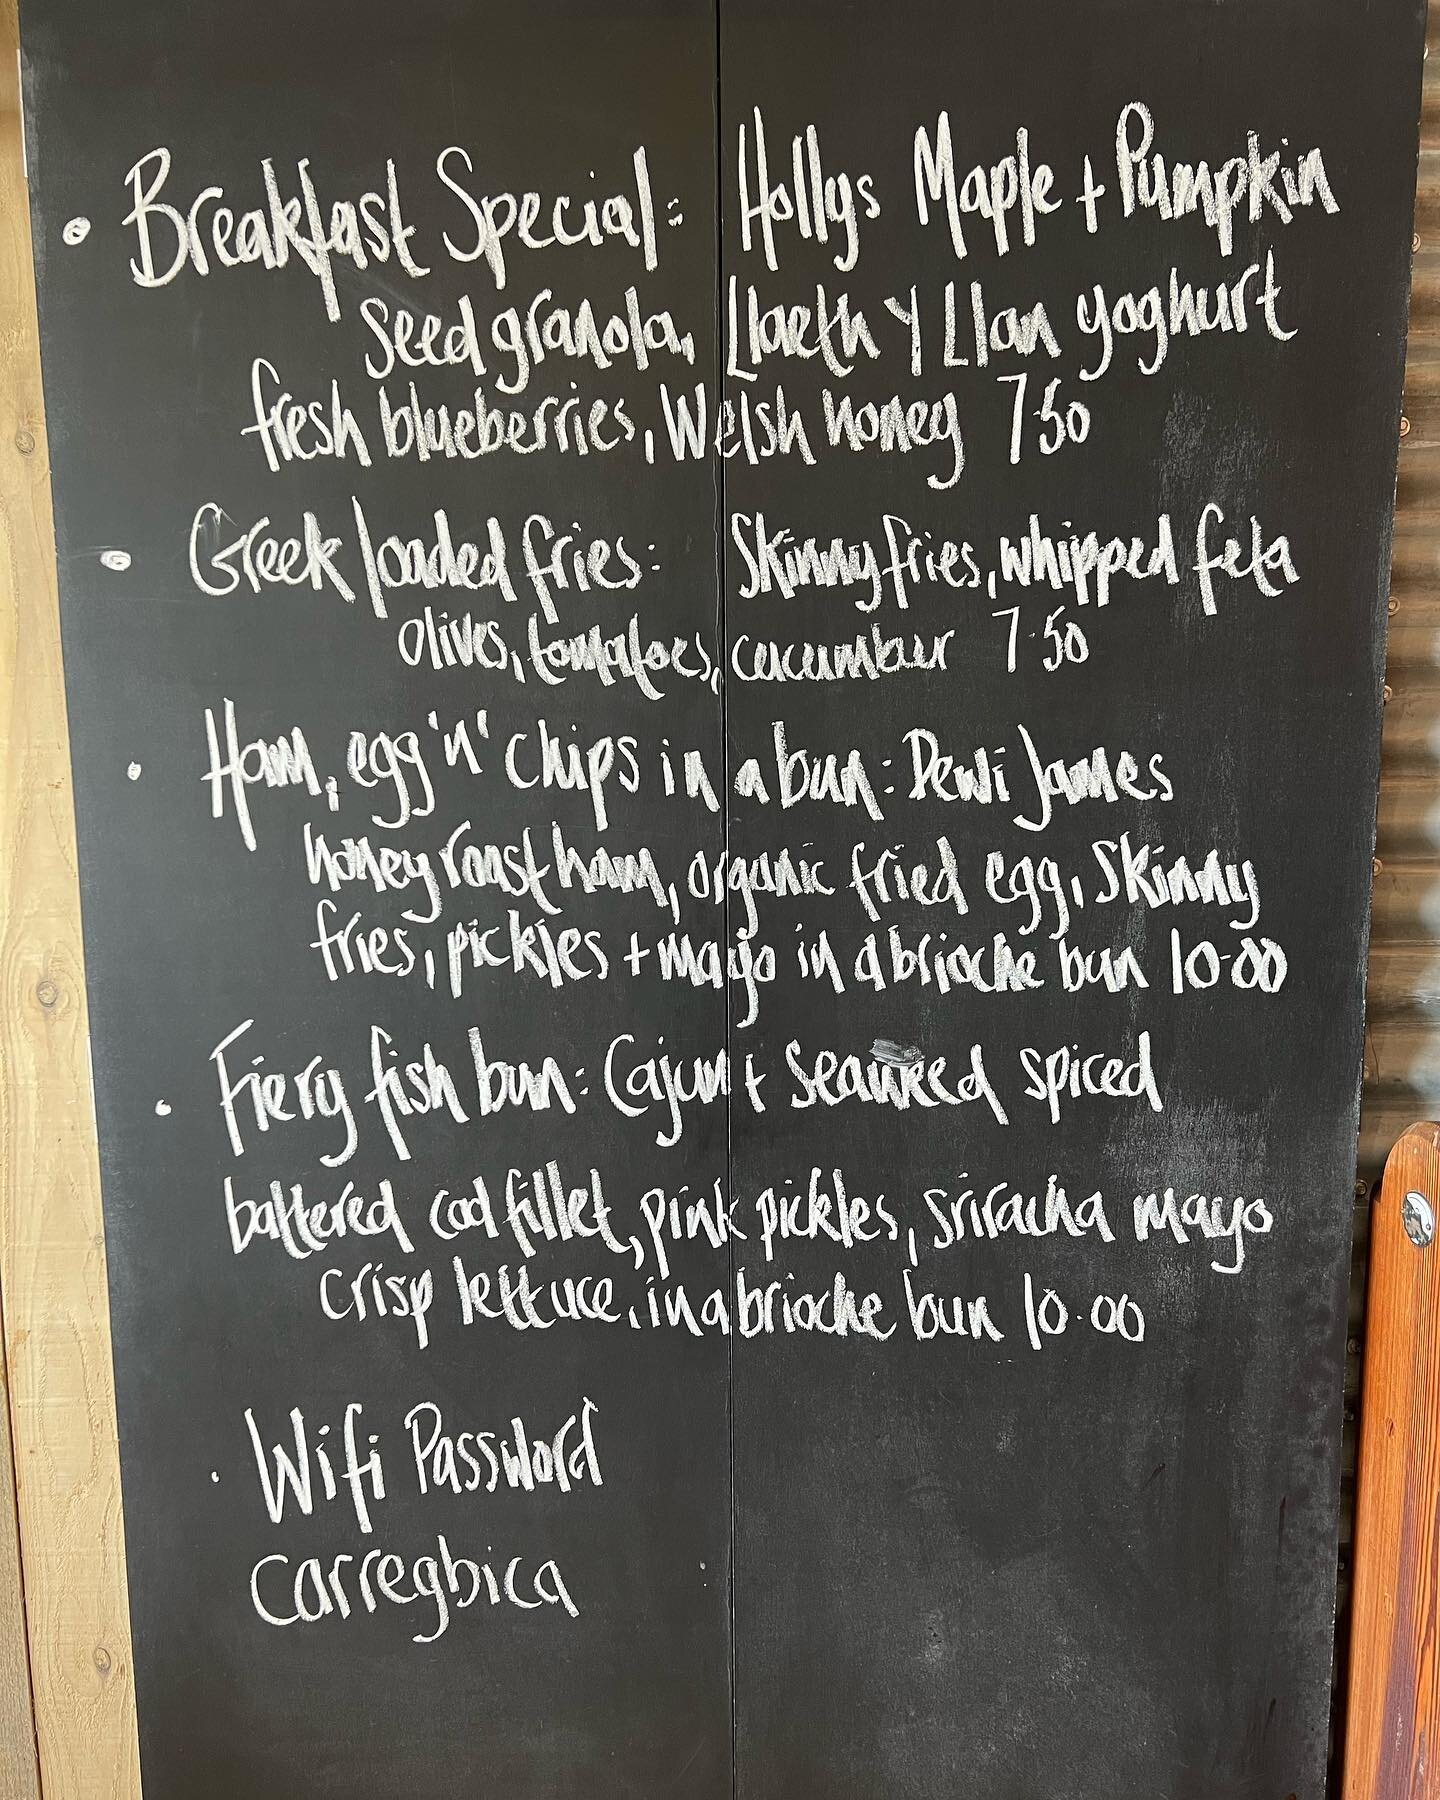 • Breakfast Special: Hollys Maple + Pumpkin
seed granola, Llaeth Y Llan yoghurt
fresh blueberries, Welsh honey 7.50
• Greek loaded fries: Skinny fries, whipped feta
olives, tomatoes, cucumber 7.50
• Ham, egg 'n' chips in a bun: Dewi James
honey roast ham, organic fried egg, skinny
fries, pickles + mayo in a brioche bun 10.00
• Fiery fish bun: Cajun + Seaweed spiced
battered cod fillet, pink pickles, sriracha mayo
crisp lettuce, in a brioche bun 10.00
• Wifi Password
carregbica